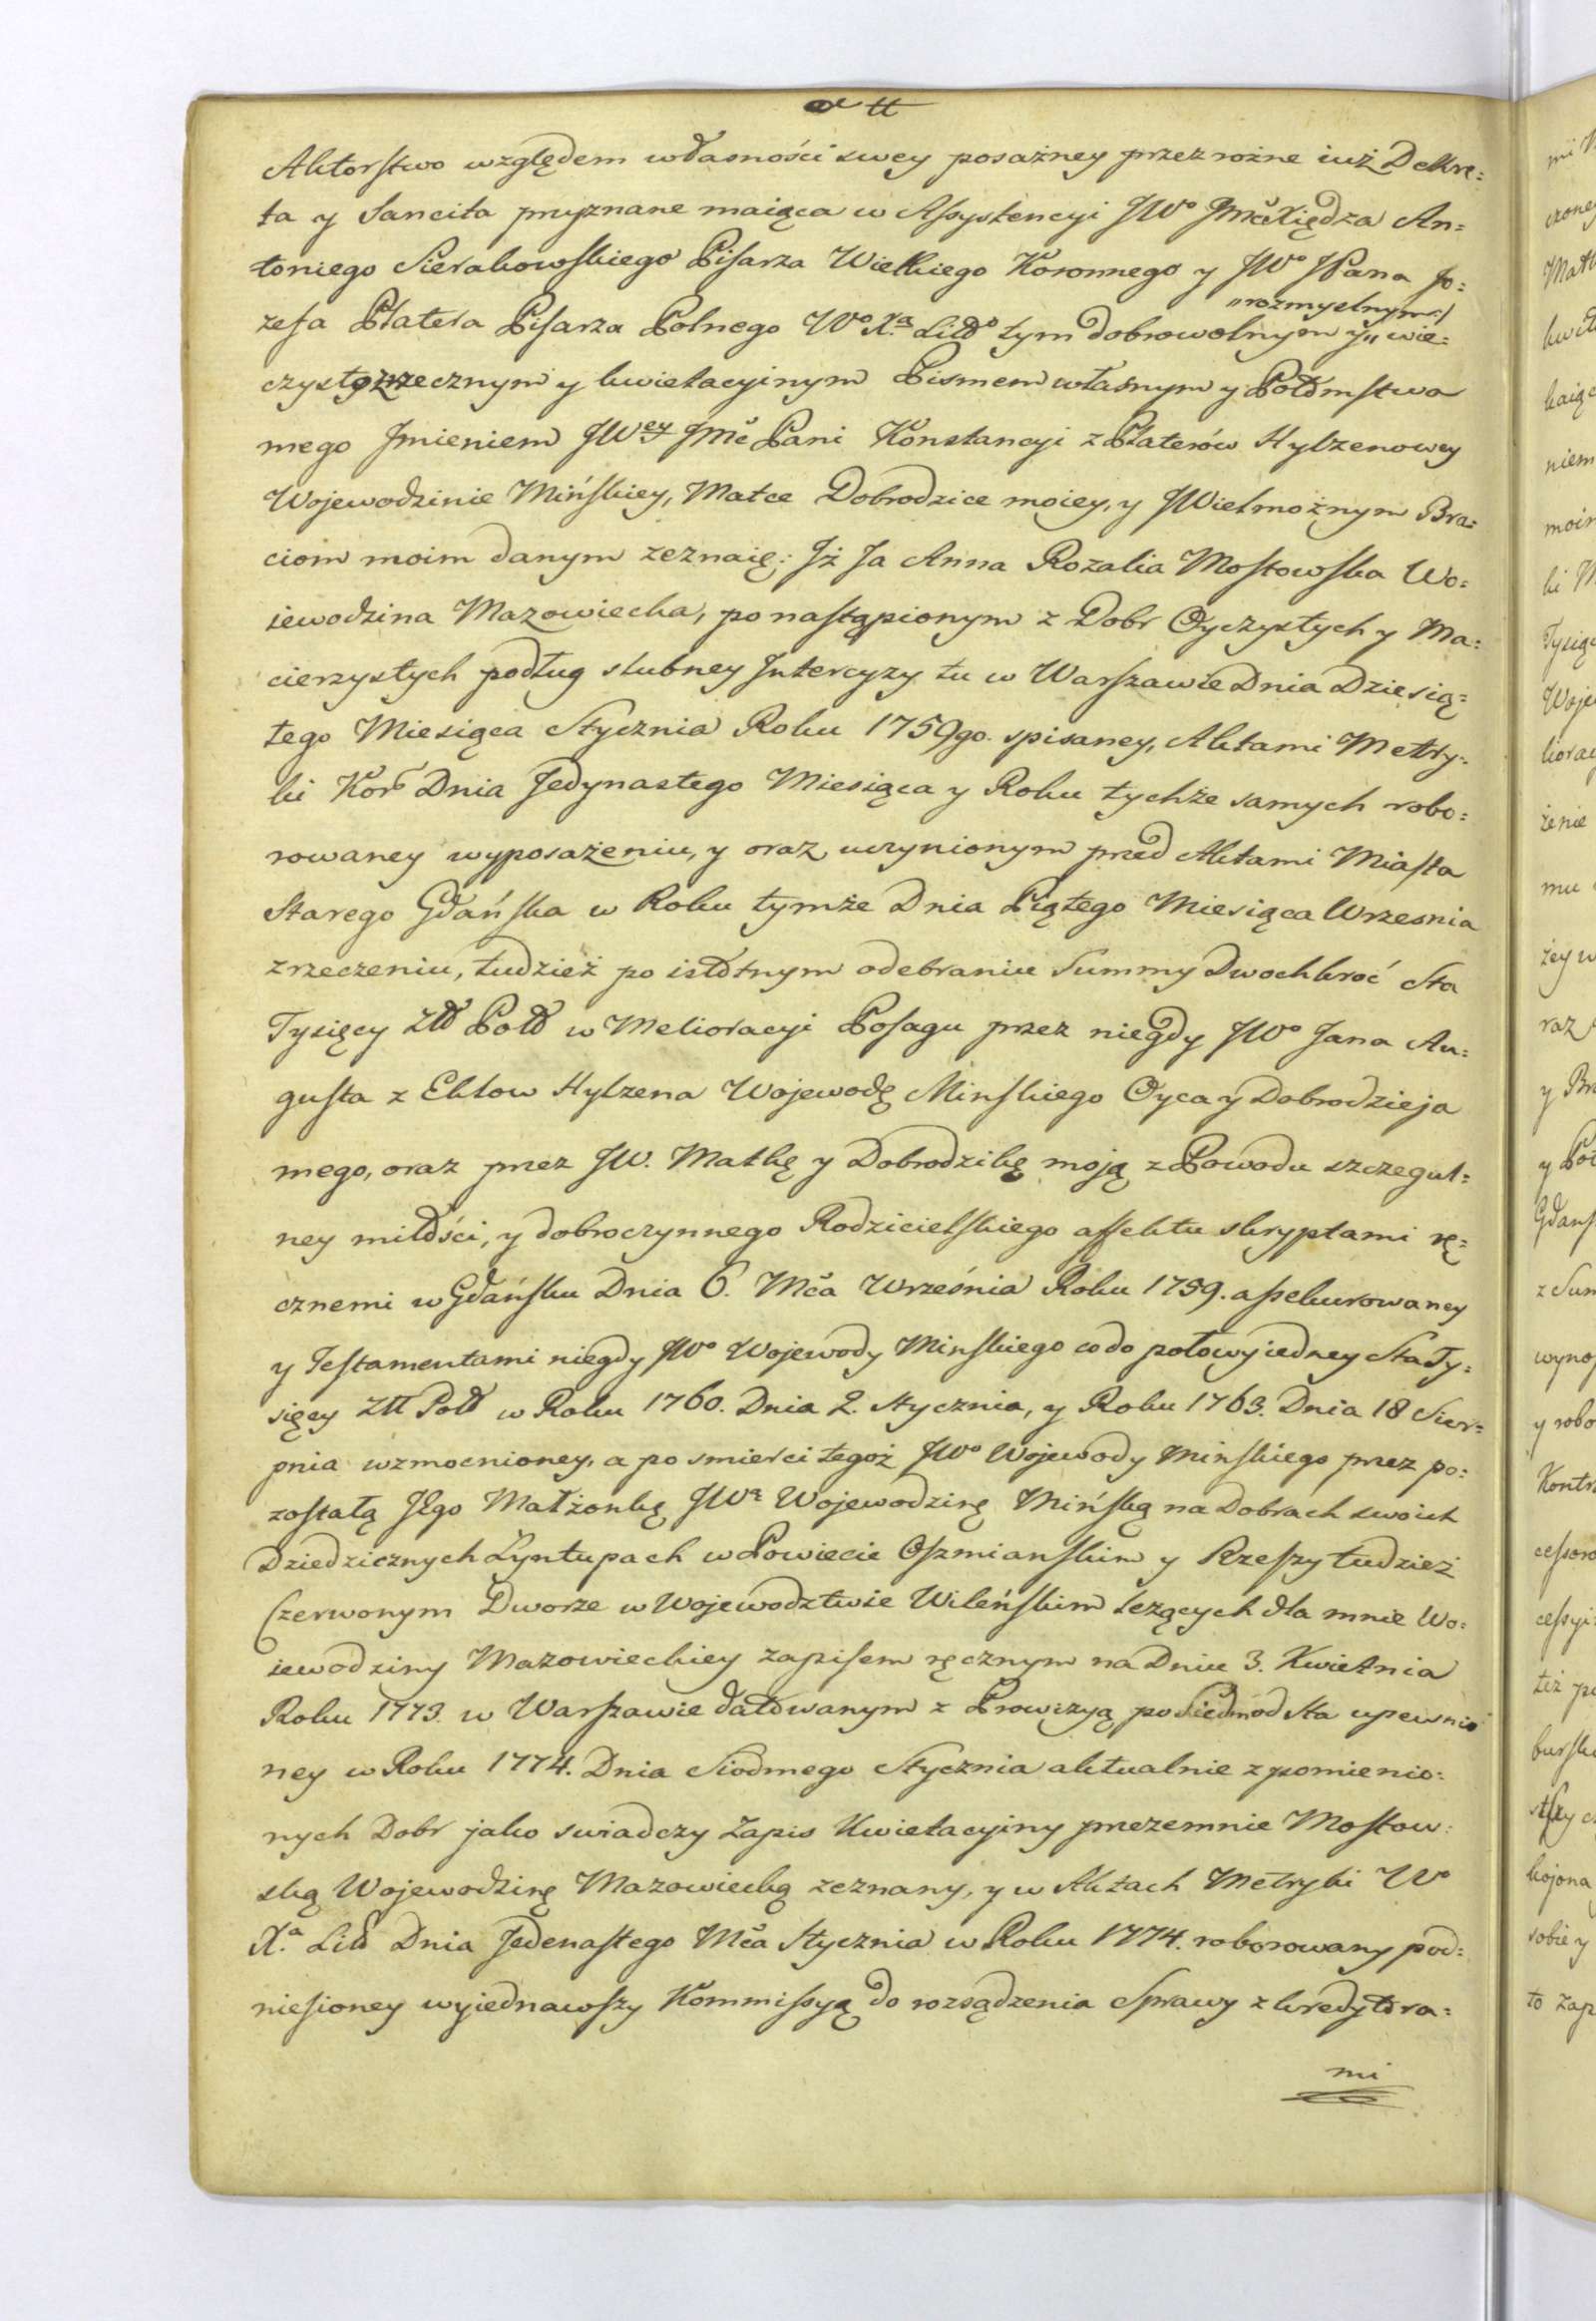 Aktorstwo względem własności swey posażney przez rożne iuż Dekre:
ta y Sancita przyznane maiąca w Assystencyi JWo JMcXiędza An:
toniego Sierakowskiego Pisarza Wielkiego Koronnego y JWo JPana Jo:
„rozmyslnym:/
zefa Platera Pisarza Polnego Wo Xa Litto tym dobrowolnym y„ wie:
czystozrzecznym y kwietacyinym Pismem własnym y Pottmstwa
mego Jmieniem JWey JMć Pani Konstancyi z Platerów Hylzenowey
Wojewodzinie Mińskiey, Matce Dobrodzice moiey, y JWielmożnym Bra:
ciom moim danym zeznaię: Jż Ja Anna Rozalia Mostowska Wo:
iewodzina Mazowiecka, po nastąpionym z Dobr Oyczystych y Ma:
cierzystych podług slubney Jntercyzy tu w Warszawie Dnia Dziesią:
tego Miesiąca Stycznia Roku 1759go. spisaney, Aktami Metry:
ki Kor Dnia Jedynastego Miesiąca y Roku tychże samych robo:
rowaney wyposażeniu, y oraz uczynionym przed Aktami Miasta
Starego Gdańska w Roku tymże Dnia Piątego Miesiąca Wrzesnia
zrzeczeniu, tudzież po istotnym odebraniu Summy Dwochkroć Sta
Tysięcy Ztt Poll w Melioracyi Posagu przez niegdy JWo Jana Au:
gusta z Eklow Hylzena Wojewodę Minskiego Oyca y Dobrodzieja
mego, oraz przez JW. Matkę y Dobrodzikę moją z Powodu szczegul:
ney miłości, y dobroczynnego Rodzicielskiego affektu skryptami rę:
cznemi w Gdańsku Dnia 6. Mca Września Roku 1759. assekurowaney
y Testamentami niegdy JWo Wojewody Minskiego co do połowy iedney Sta Ty:
sięcy Ztt Poll w Roku 1760. Dnia 2. Stycznia, y Roku 1763. Dnia 18 Sier:
pnia wzmocnioney, a po smierci tegoż JWo Wojewody Minskiego przez po:
zostałą JEgo Małżonkę JWą Wojewodzinę Mińską na Dobrach swoich
Dziedzicznych Łyntupach w Powiecie Oszmianskim y Rzeszy tudzież
Czerwonym Dworze w Wojewodztwie Wileńskim leżących dla mnie Wo:
iewodziny Mazowieckiey zapisem ręcznym na Dniu 3. Kwietnia
Roku 1773. w Warszawie datowanym z Prowizyą po Siedm od Sta upewnio
ney w Roku 1774. Dnia Siodmego Stycznia aktualnie z pomienio:
nych Dobr jako swiadczy Zapis Kwietacyiny przezemnie Mostow:
ską Wojewodzinę Mazowiecką zeznany, y w Aktach Metryki Wo
X.a Litt Dnia Jedenastego Mca Stycznia w Roku 1774. roborowany pod:
niesioney wyiednawszy Kommissyą do rozsądzenia Sprawy z kredytora:
mi